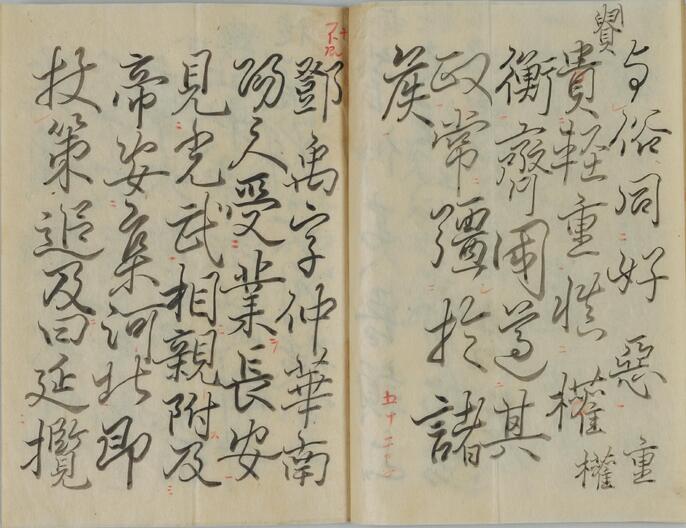 与俗同好惡
重
賢
貴軽重慎權
權
衡齊囯遵其
政常彊於諸
侯
鄧禹字仲華南
陽人受業長安
見光武相親附及
帝安集河北即
杖策追及曰延攬